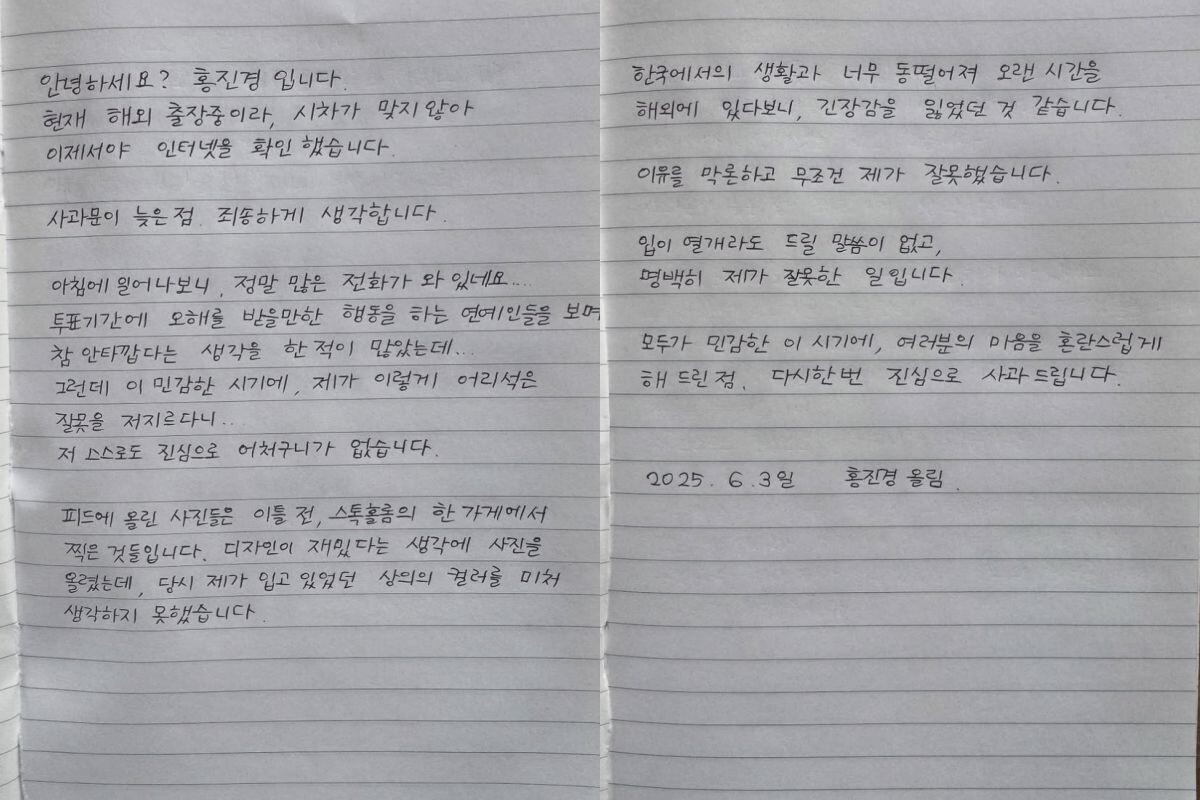 안녕하세요? 홍진경 입니다.
현재 해외 출장중이라, 시차가 맞지 않아
이제서야 인터넷을 확인 했습니다.
사과문이 늦은 점. 죄송하게 생각합니다.
아침에 일어나보니, 정말 많은 전화가 와 있네요....
투표기간에 오해를 받을만한 행동을 하는 연예인들을 보며
참 안타깝다는 생각을 한 적이 많았는데...
그런데 이 민감한 시기에, 제가 이렇게 어리석은
잘못을 저지르다니...
저 스스로도 진심으로 어처구니가 없습니다.
피드에 올린 사진들은 이틀 전, 스톡홀롬의 한 가게에서
찍은 것들입니다. 디자인이 재밌다는 생각에 사진을
올렸는데, 당시 제가 입고 있었던 상의의 컬러를 미처
생각하지 못했습니다.
한국에서의 생활과 너무 동떨어져 오랜 시간을
해외에 있다보니, 긴장감을 잃었던 것 같습니다.
이유를 막론하고 무조건 제가 잘못했습니다.
입이 열개라도 드릴 말씀이 없고,
명백히 제가 잘못한 일입니다.
모두가 민감한 이 시기에, 여러분의 마음을 혼란스럽게
해 드린 점. 다시한번 진심으로 사과드립니다.
2025. 6. 3일 홍진경 올림.